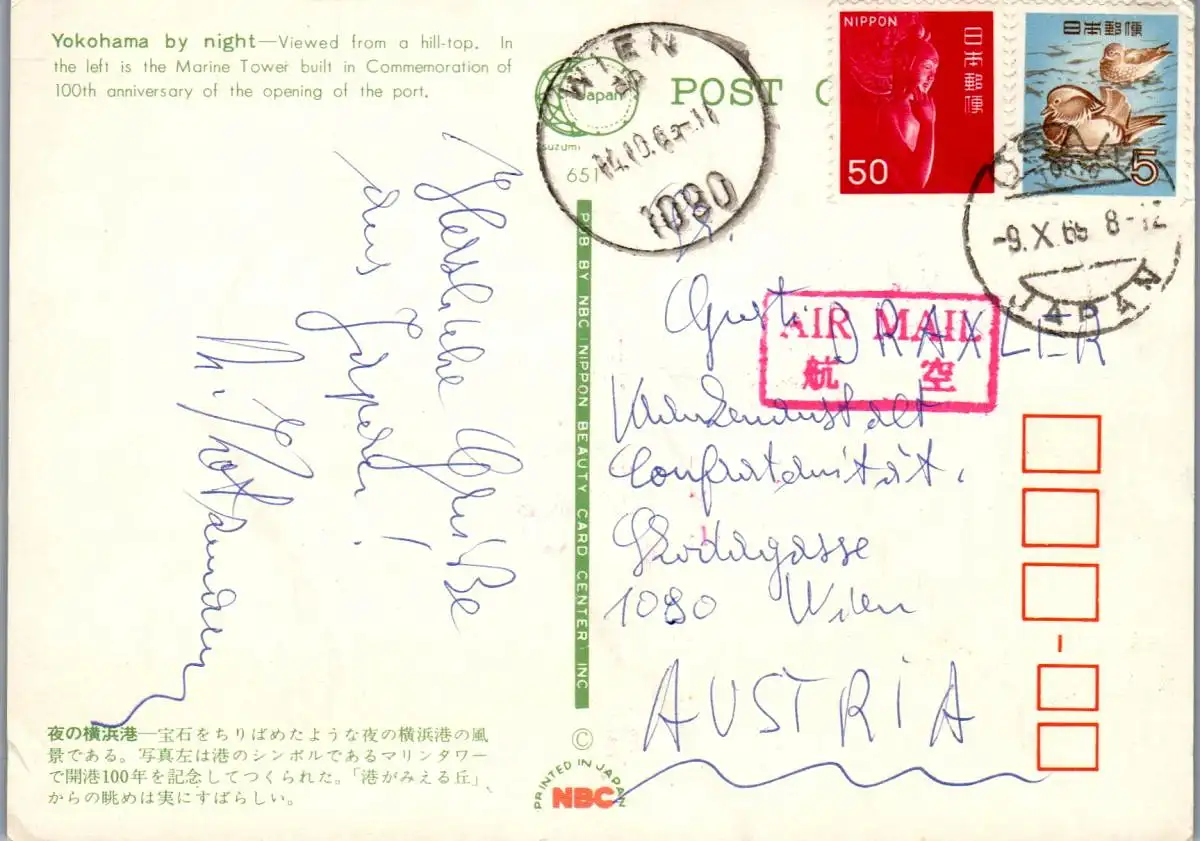 Yokohama by night—Viewed from a hill-top. In
the left is the Marine Tower built in Commemoration of
100th anniversary of the opening of the port.
WIEN
14.10.68-11
1080
Japan
suzumi
651
POST C
NIPPON
日本郵便
50
日本郵便
5
-9.X.68 8-12
JAPAN
AIR MAIL
航 空
Herzliche Grüße
aus Japan!
PUB BY NBC (NIPPON BEAUTY CARD CENTER) INC
Fr.
Gusti DRAXLER
Krankenanstalt
Confraternität.
Skodagasse
1080 Wien
AUSTRIA
夜の横浜港—宝石をちりばめたような夜の横浜港の風
景である。写真左は港のシンボルであるマリンタワー
で開港100年を記念してつくられた。「港がみえる丘」
からの眺めは実にすばらしい。
©
PRINTED IN JAPAN
NBC